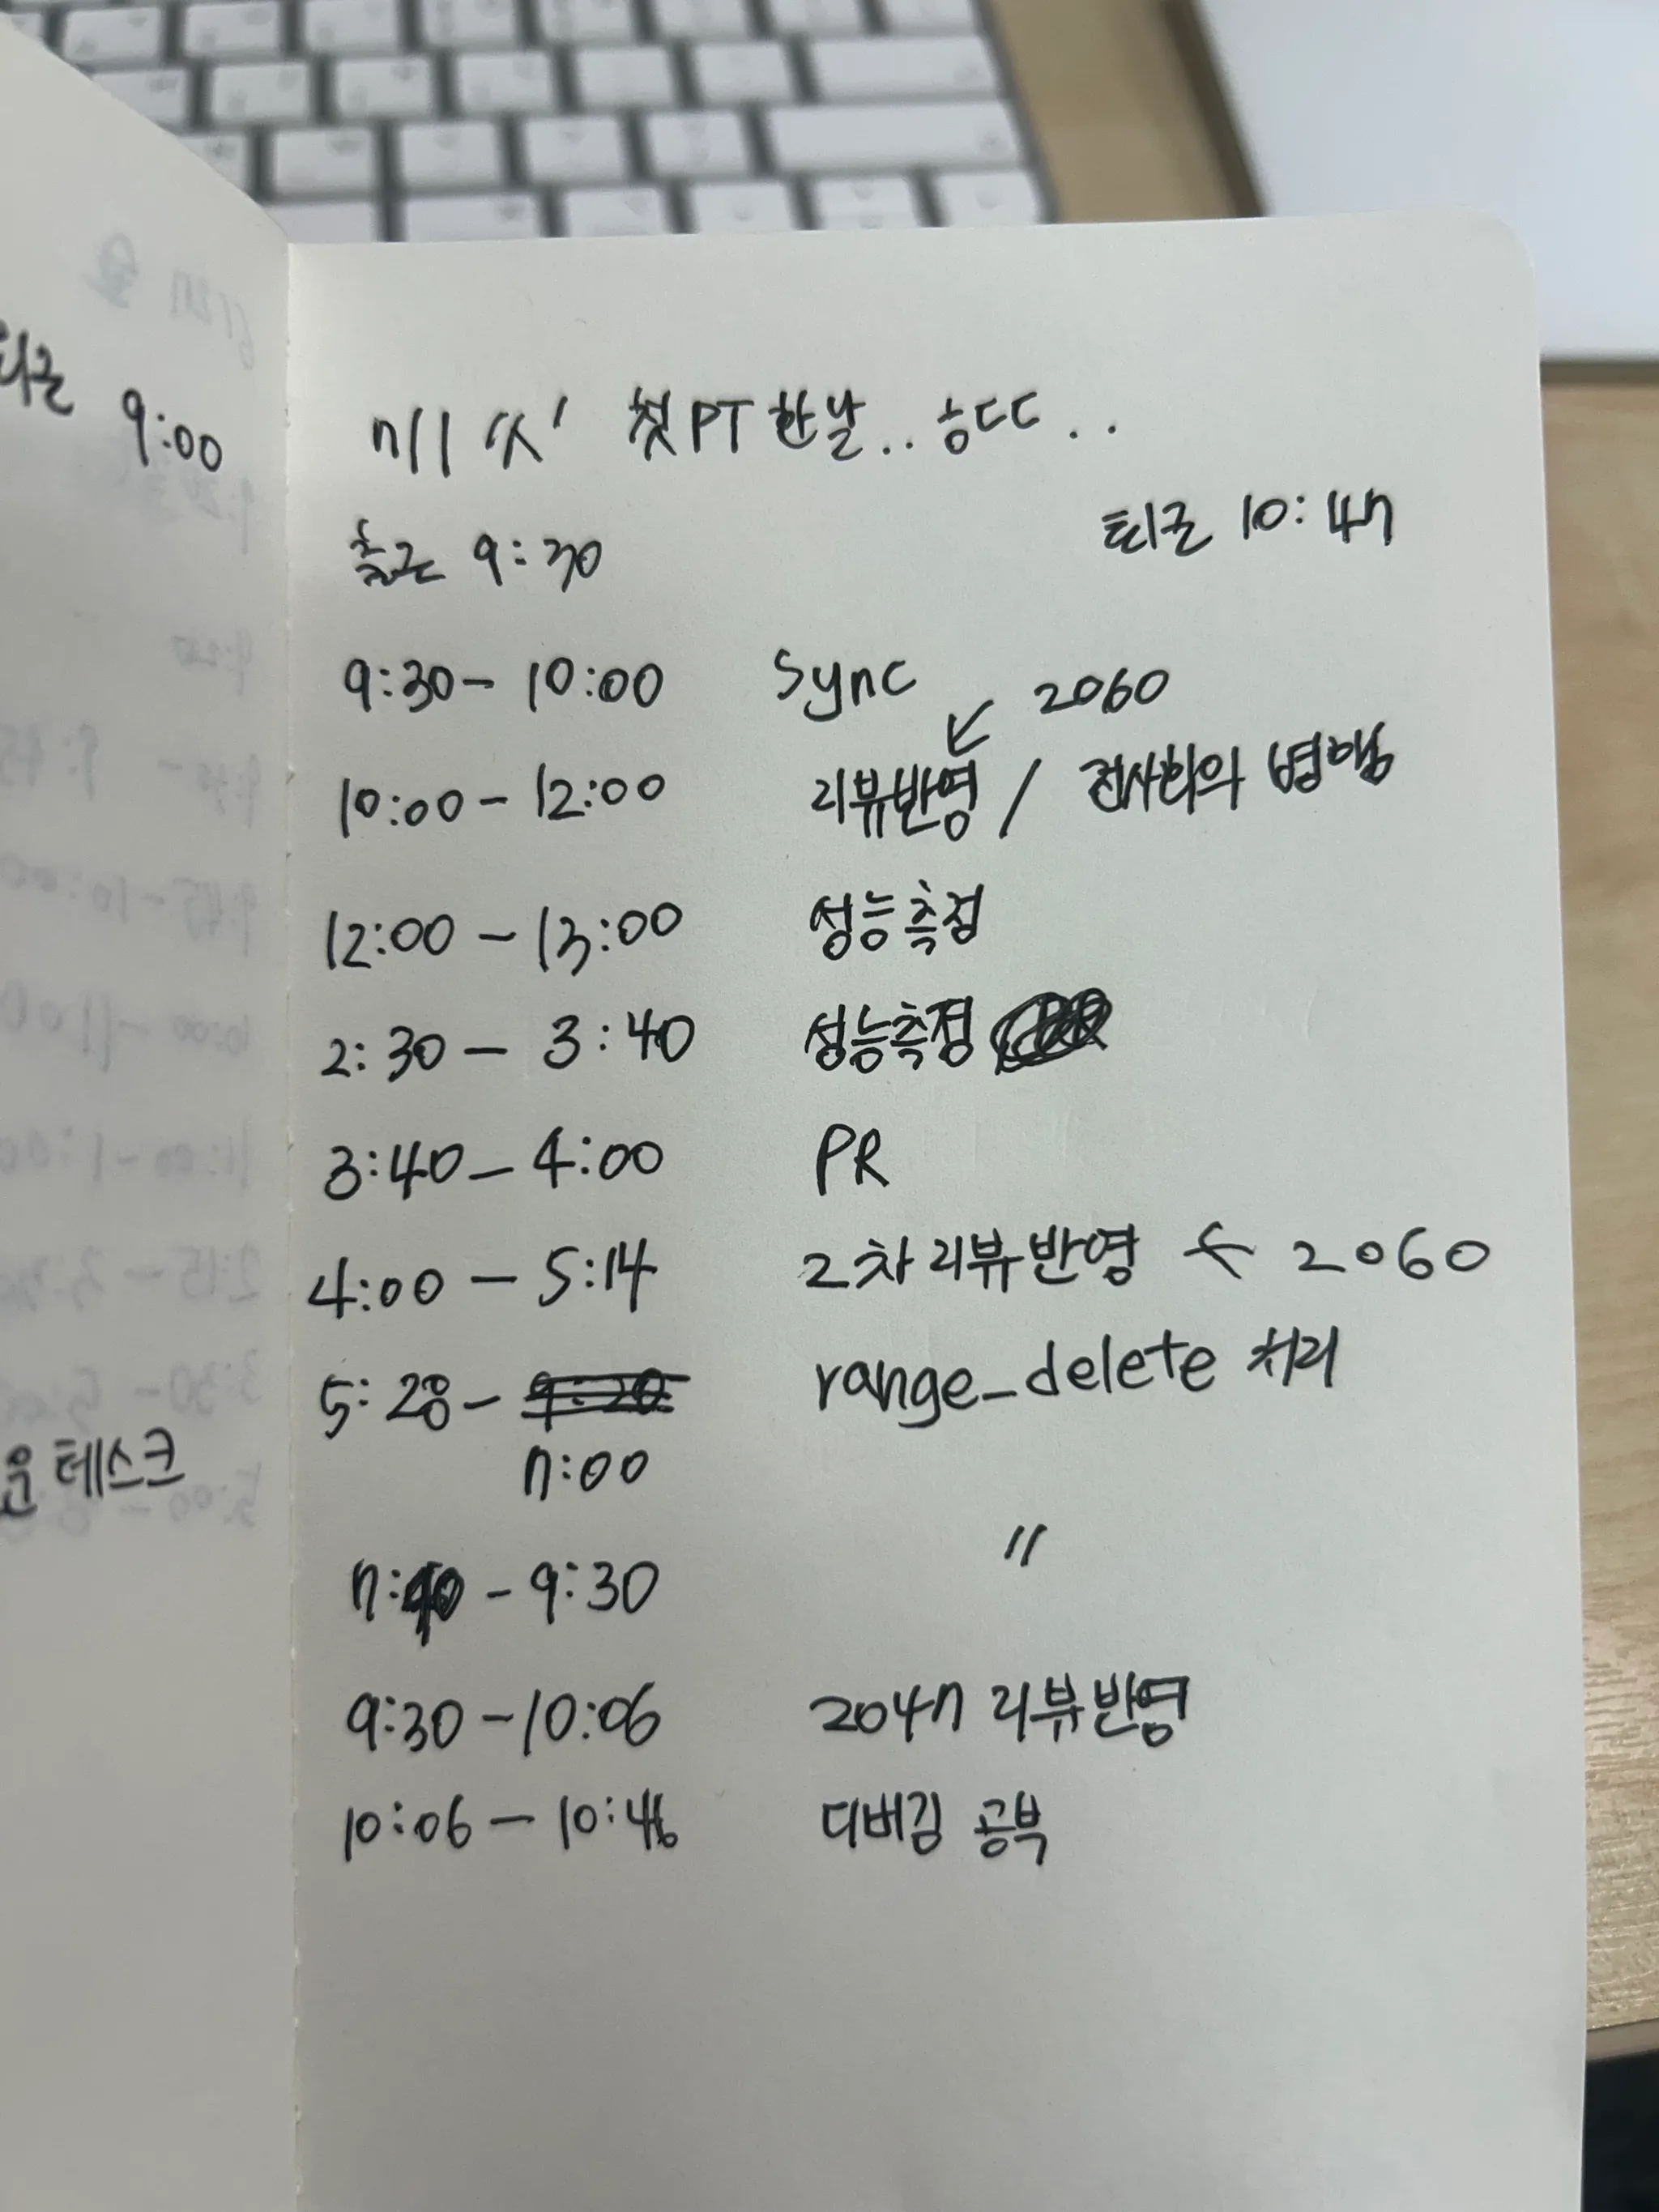 퇴근 9:00
7/1 첫 PT 한 날.. ㅎㄷㄷ..
출근 9:30
퇴근 10:47
9:30 - 10:00 Sync
↙ 2060
10:00 - 12:00 리뷰반영 / 전사회의 병행
12:00 - 13:00 성능측정
2:30 - 3:40 성능측정
3:40 - 4:00 PR
4:00 - 5:14 2차 리뷰반영 ← 2060
5:28 - 7:00 range_delete 처리
7: - 9:30 〃
9:30 - 10:06 2047 리뷰반영
10:06 - 10:46 디버깅 공부
운 테스크